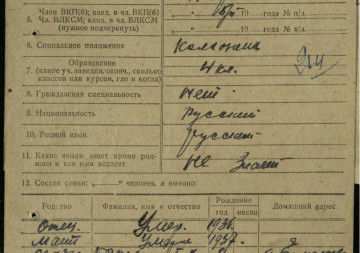 Член ВКП(б); канд. в чл. ВКП(б)
5. Чл. ВЛКСМ; канд. в чл. ВЛКСМ
(нужное подчеркнуть)
19 года № п/л.
19 года № п/л.
6. Социальное положение
Колхозник
7. Образование
(какое уч. заведен. оконч., сколько
классов или курсов, где и когда)
4 кл.
8. Гражданская специальность
нет
9. Национальность
русский
10. Родной язык
русский
11. Какие языки знает кроме род-
ного и как ими владеет
не знает
12. Состав семьи: „———" человек, а именно:
Родство Фамилия, имя и отчество Рождение Домашний адрес
год месяц
Отец Умер. 1936
Мать 1937